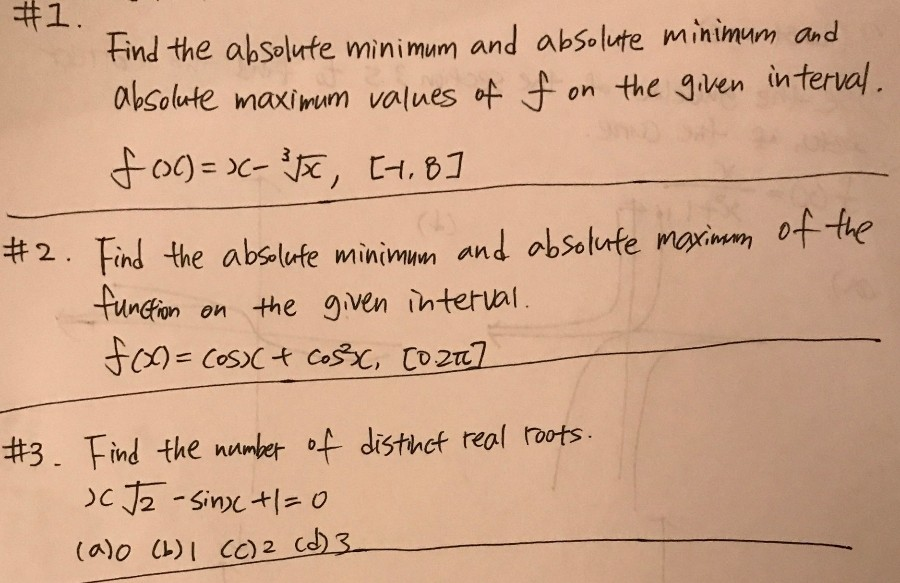 #1.
Find the absolute minimum and absolute minimum and
absolute maximum values of f on the given interval.
f(x) = x - ∛x, [-1, 8]
#2. Find the absolute minimum and absolute maximum of the
function on the given interval.
f(x) = cosx + cos²x, [0.2π]
#3. Find the number of distinct real roots.
x√2 - sinx + 1 = 0
(a)0 (b)1 (c)2 (d)3